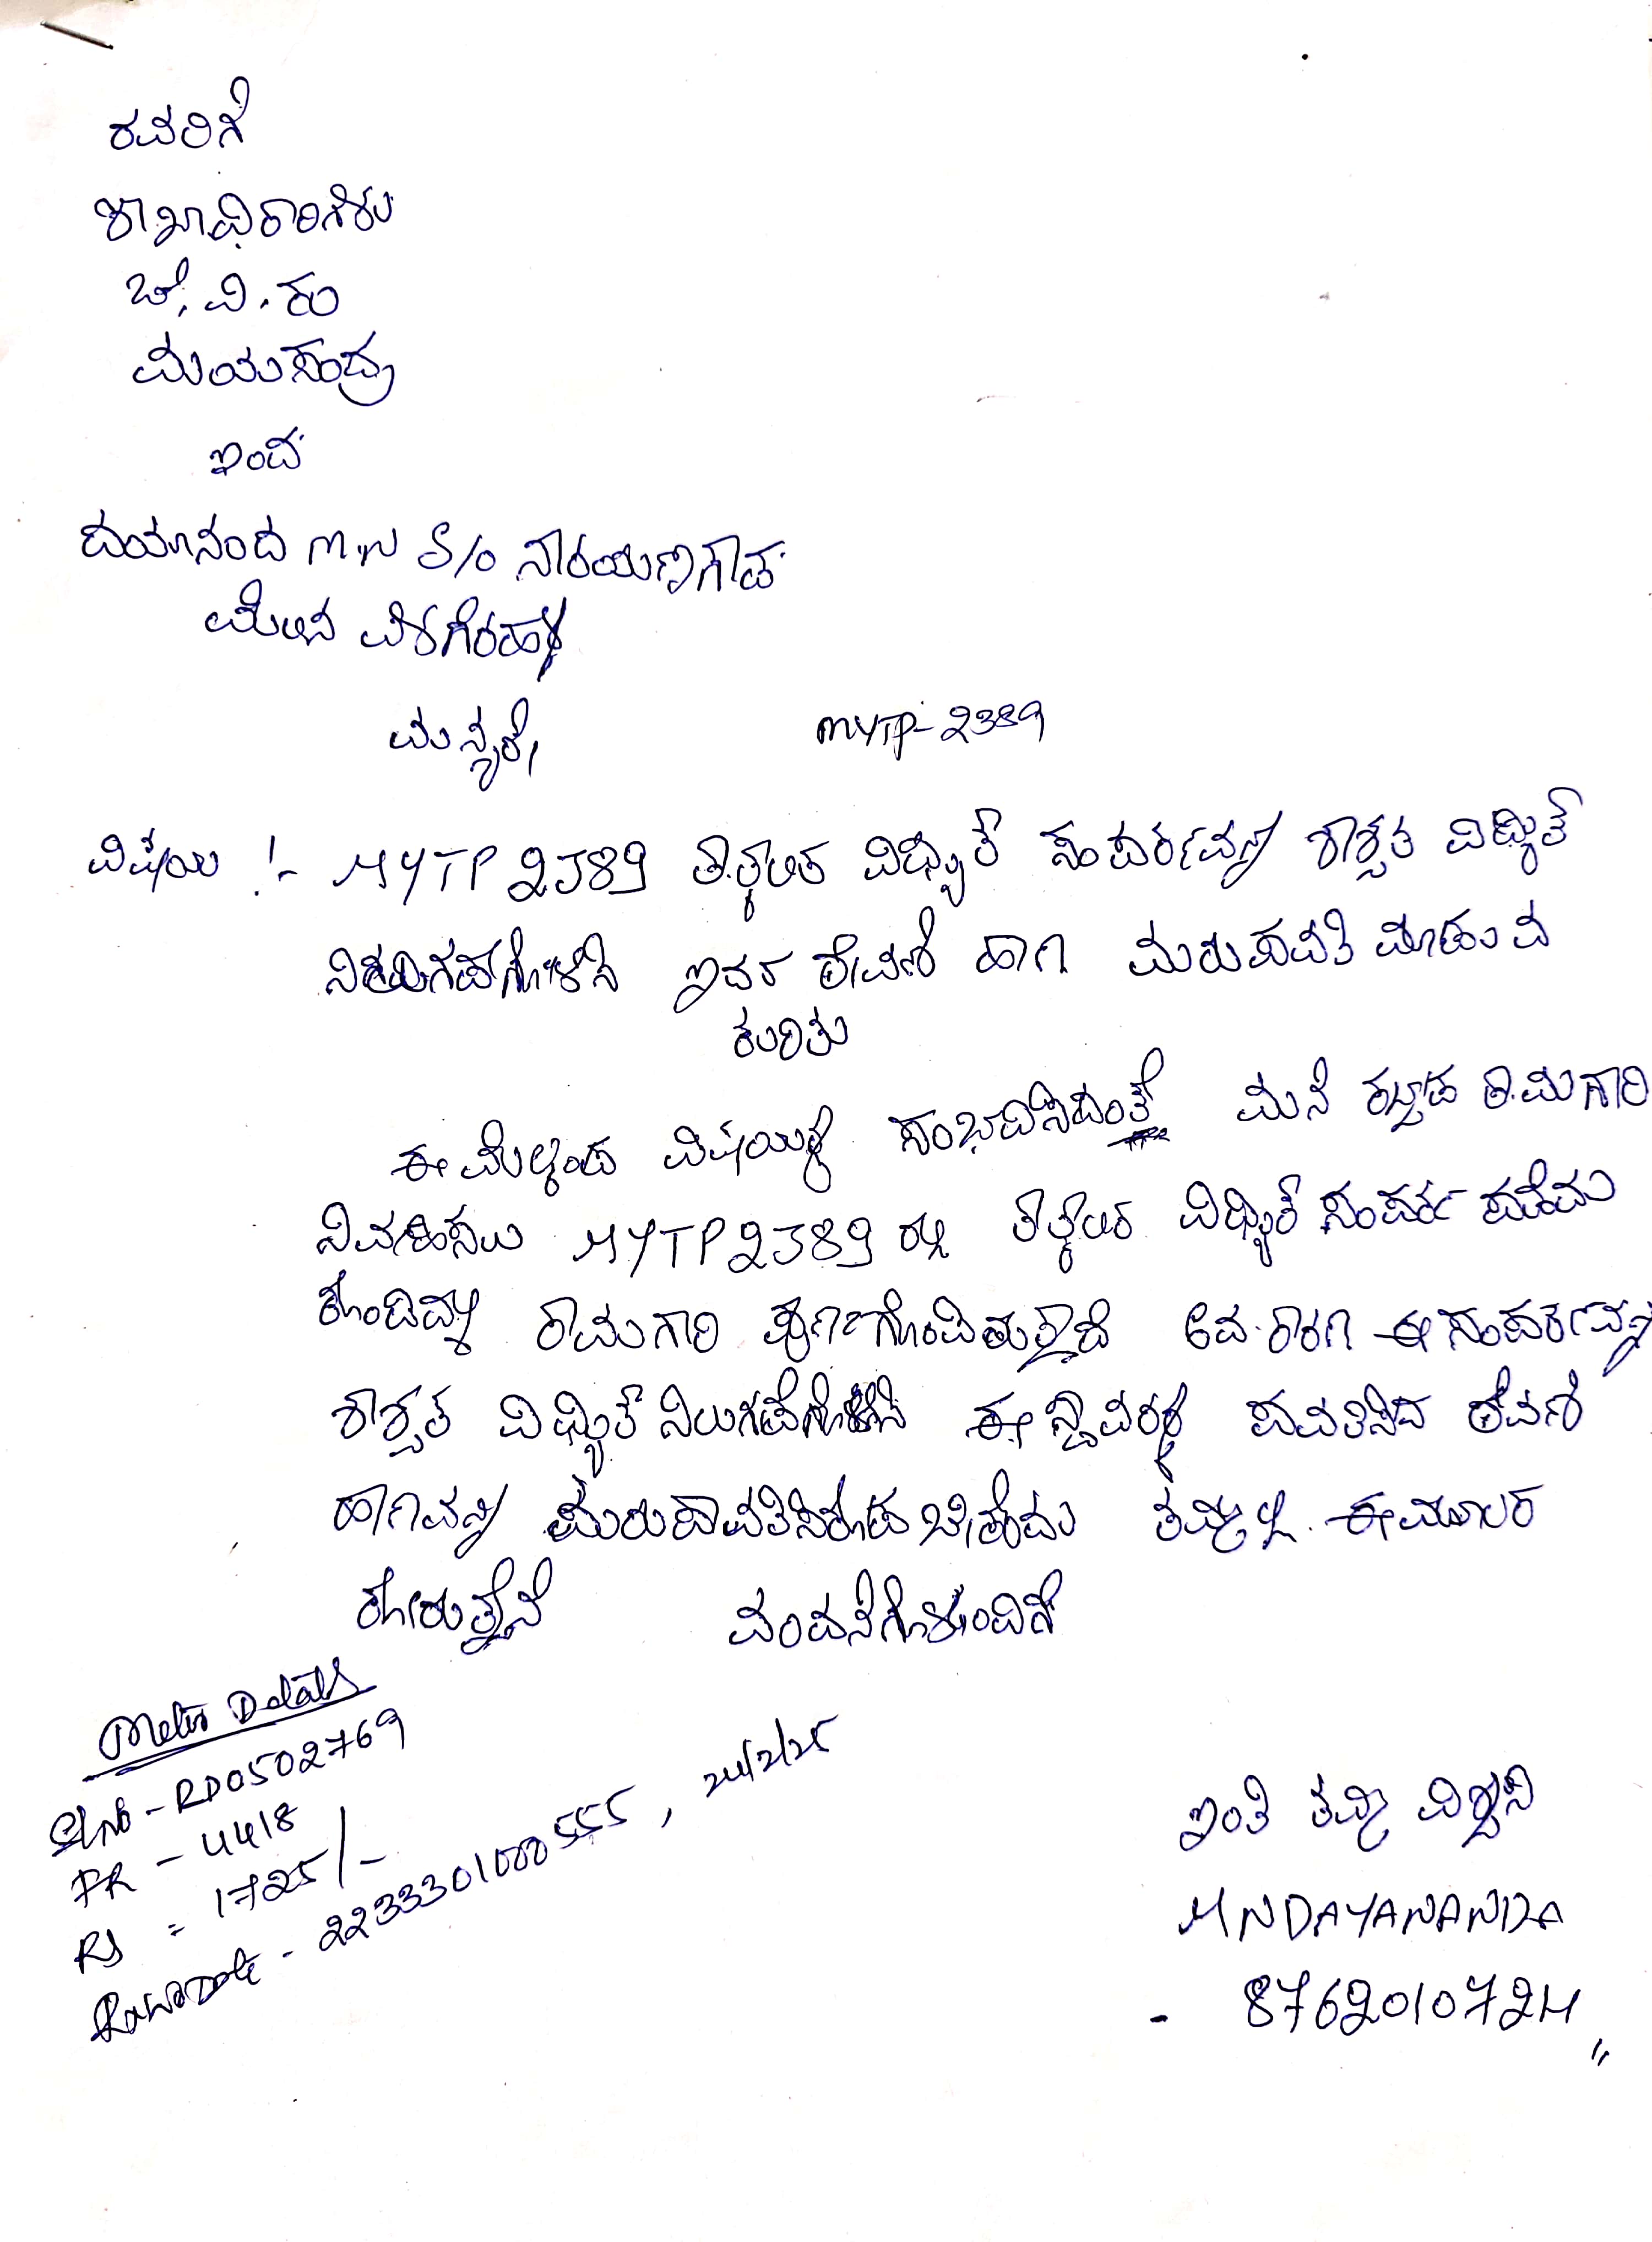 ರವರಿಗೆ
ಶಾಖಾಧಿಕಾರಿಗಳು
ಬೆ.ವಿ.ಕಂ
ಮಾಯಸಂದ್ರ
ಇಂದ
ದಯಾನಂದ M.N S/o ನಾರಯಣಗೌಡ
ಮೇಲಿನ ವರಗೆರಹಳ್ಳಿ
ಮಾನ್ಯರೆ, MYTP-2389
ವಿಷಯ :- MYTP 2389 ತಾತ್ಕಾಲಿಕ ವಿದ್ಯುತ್ ಸಂಪರ್ಕವನ್ನು ಶಾಶ್ವತ ವಿದ್ಯುತ್
ನಿಲುಗಡೆಗೊಳಿಸಿ ಇದರ ಠೇವಣಿ ಹಾಗಿ ಮರುಪಾವತಿ ಮಾಡುವ
ಕುರಿತು
ಈ ಮೇಲ್ಕಂಡ ವಿಷಯಕ್ಕೆ ಸಂಭವಿಸಿದಂತೆ ಮನೆ ಕಟ್ಟಡ ಕಾಮಗಾರಿ
ನಿರ್ವಹಿಸಲು MYTP 2389 ರಲ್ಲಿ ತಾತ್ಕಾಲಿಕ ವಿದ್ಯುತ್ ಸಂಪರ್ಕ ಪಡೆದು
ಕೊಂಡಿದ್ದು ಕಾಮಗಾರಿ ಪೂರ್ಣಗೊಂಡಿರುತ್ತದೆ ಆದ ಕಾರಣ ಈ ಸಂಪರ್ಕವನ್ನು
ಶಾಶ್ವತ ವಿದ್ಯುತ್ ನಿಲುಗಡೆಗೊಳಿಸಿ ಈ ಸ್ಥಾವರಕ್ಕೆ ಪಾವತಿಸಿದ ಠೇವಣಿ
ಹಾಗಿವನ್ನು ಮರುಪಾವತಿಸಿಕೊಡಬೇಕೆಂದು ತಮ್ಮಲ್ಲಿ ಈ ಮೂಲಕ
ಕೋರುತ್ತೇನೆ ವಂದನೆಗಳೊಂದಿಗೆ
Meter Details
Sl No - RD0502769
FR - 4418
RS = 1725/-
- 2233301000555, 24/2/25
ಇಂತಿ ತಮ್ಮ ವಿಶ್ವಾಸಿ
M N DAYANANDA
- 8762010724 "